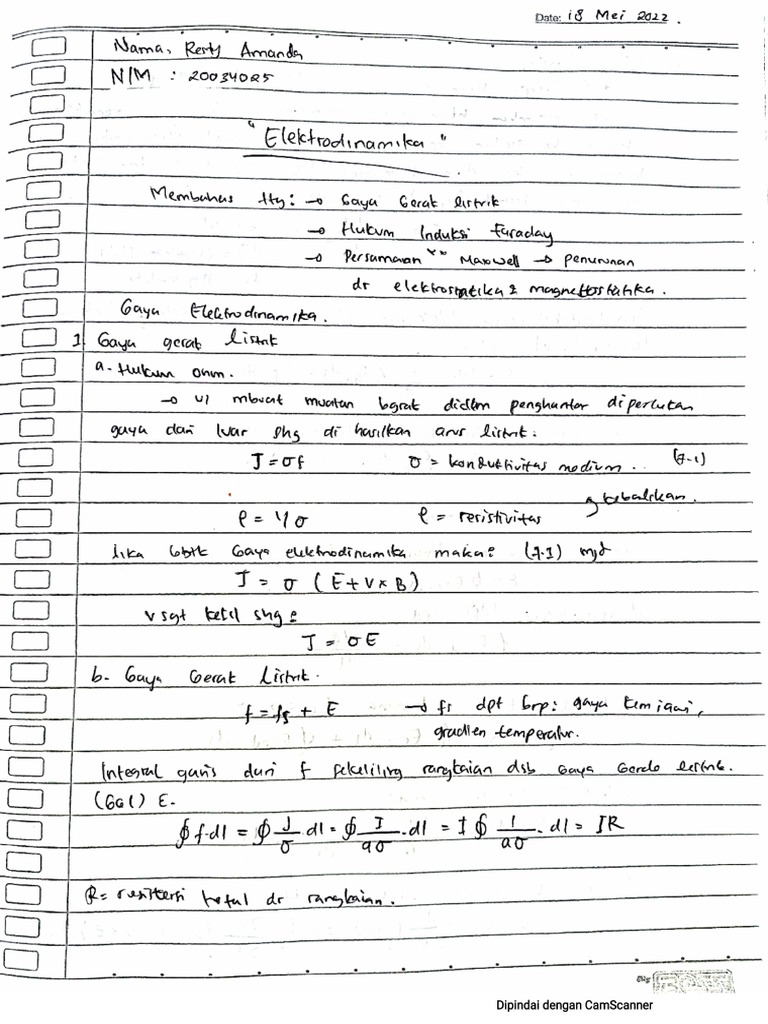 Date: 18 Mei 2022.
Nama: Resty Amanda
NIM : 20034025
"Elektrodinamika"
Membahas ttg: → Gaya Gerak listrik
→ Hukum Induksi Faraday
→ Persamaan" Maxwell → penurunan
dr elektrostatika & magnetostatika.
Gaya Elektrodinamika.
1 Gaya gerak listrik
a. Hukum Ohm.
→ u/ mbuat muatan bgrak didlm penghantar diperlukan
gaya dari luar shg di hasilkan arus listrik:
J = σf σ = konduktivitas medium.. (7.1)
kebalikan.
ρ = 1/σ ρ = resistivitas
Jika Gaya elektrodinamika maka: (7.1) mjd
J = σ (E + V × B)
v sgt kecil shg:
J = σE
b. Gaya Gerak Listrik.
f = fs + E → fs dpt brp: gaya kimiawi,
gradien temperatur.
Integral garis dari f sekeliling rangkaian dsb Gaya Gerak listrik.
(GGL) E.
∮ f.dl = ∮ J/σ . dl = ∮ I/aσ . dl = I ∮ 1/aσ . dl = IR
R = resistensi total dr rangkaian.
Dipindai dengan CamScanner